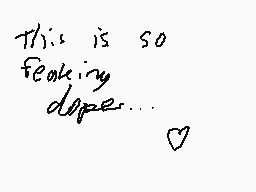 This is so
feaking
doper...